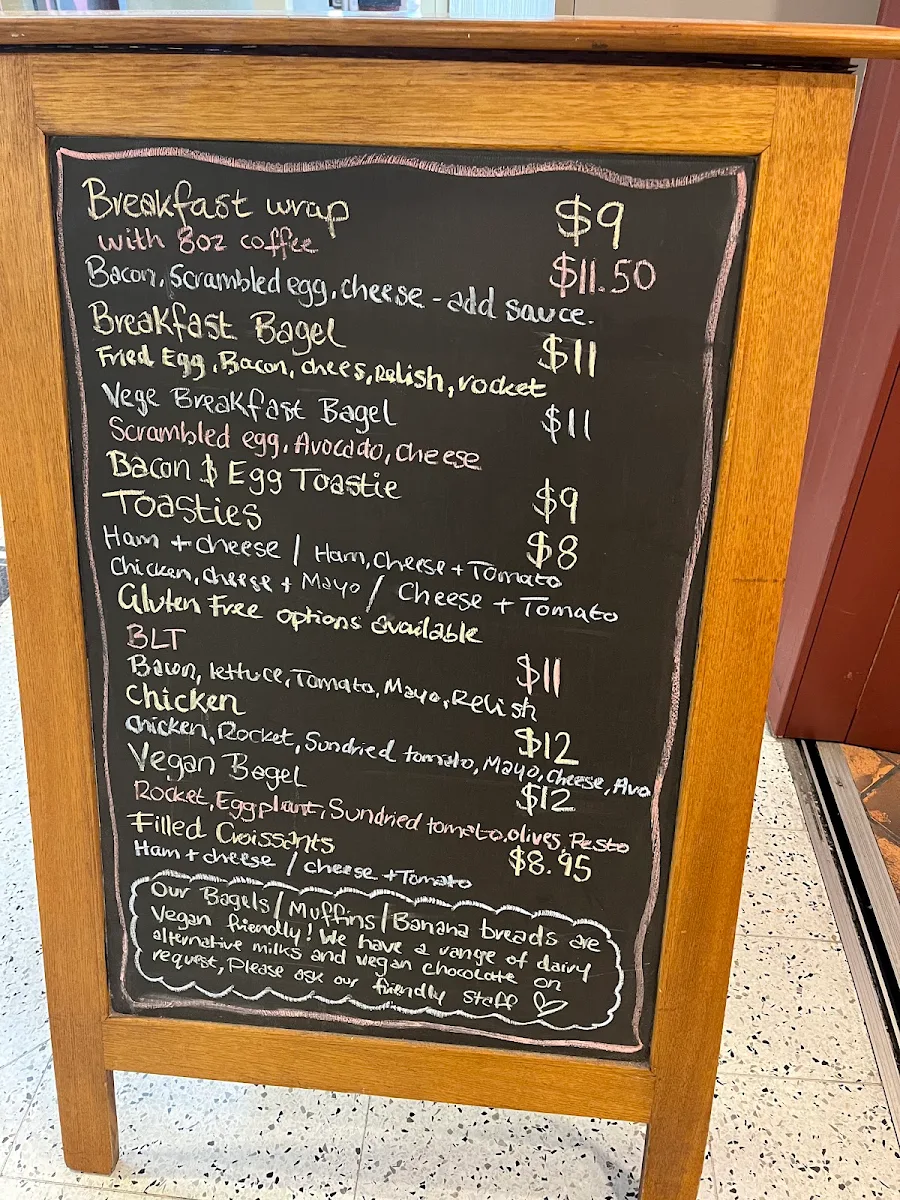 Breakfast wrap $9
with 8oz coffee $11.50
Bacon, Scrambled egg, cheese - add sauce.
Breakfast Bagel $11
Fried Egg, Bacon, chees, Relish, rocket
Vege Breakfast Bagel $11
Scrambled egg, Avocado, cheese
Bacon $ Egg Toastie $9
Toasties $8
Ham + cheese / Ham, Cheese + Tomato
Chicken, cheese + Mayo / Cheese + Tomato
Gluten Free options available
BLT $11
Bacon, lettuce, Tomato, Mayo, Relish
Chicken $12
Chicken, Rocket, Sundried tomato, Mayo, Cheese, Avo
Vegan Bagel $12
Rocket, Eggplant, Sundried tomato, olives, Pesto
Filled Croissants $8.95
Ham + cheese / cheese + Tomato
Our Bagels / Muffins / Banana breads are
Vegan friendly! We have a range of dairy
alternative milks and vegan chocolate on
request, Please ask our friendly staff